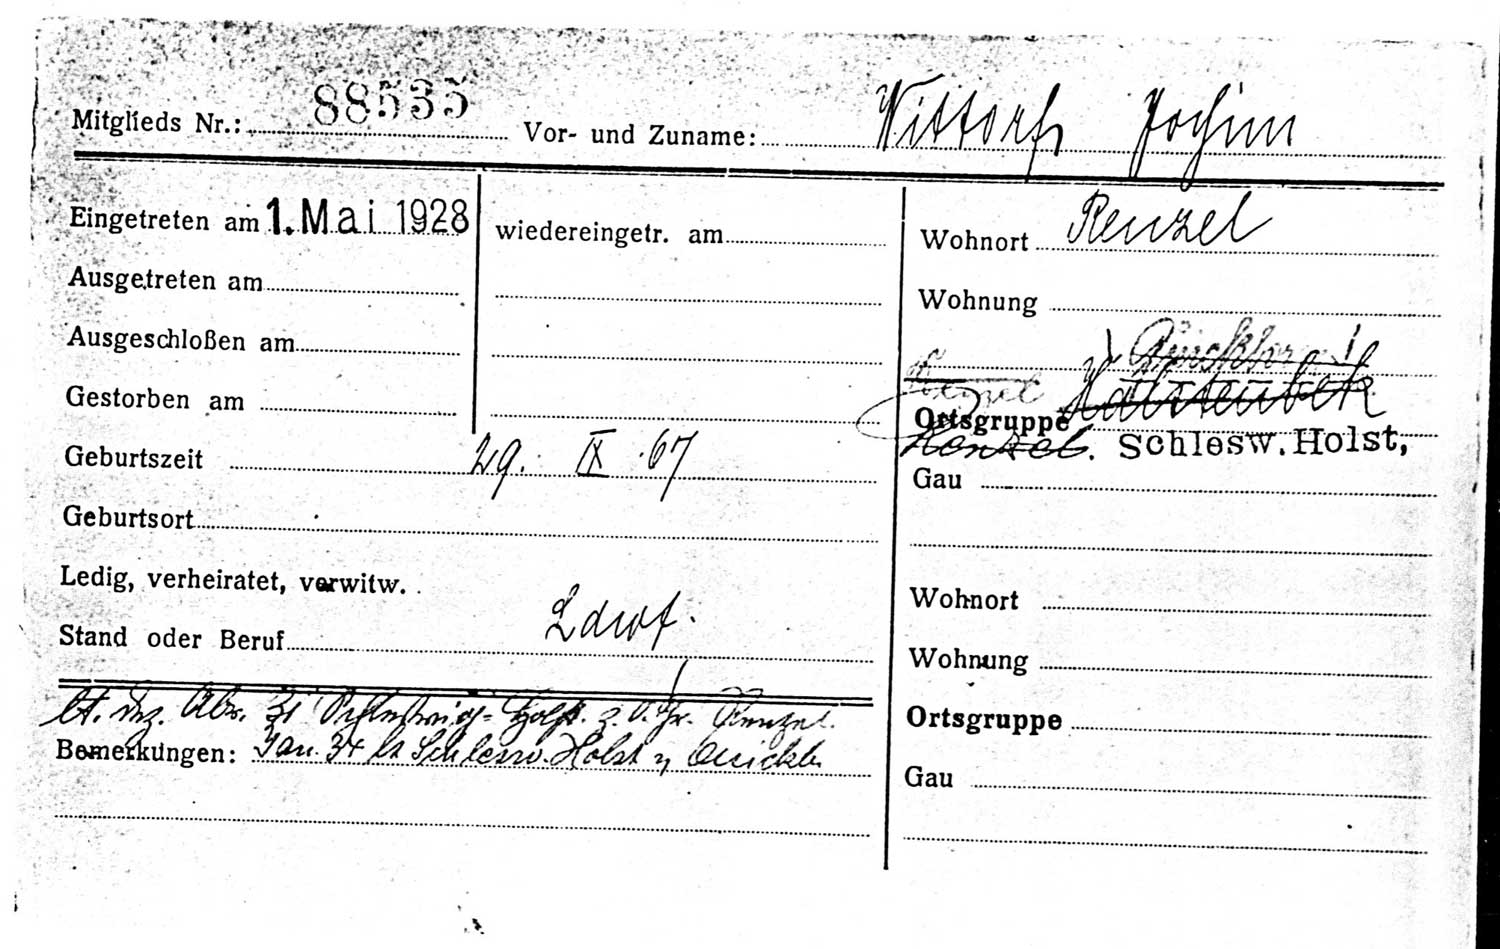 Mitglieds Nr.: 88535 Vor- und Zuname: Wittorf Jochim
Eingetreten am 1. Mai 1928 wiedereingetr. am Wohnort Renzel
Ausgetreten am Wohnung
Ausgeschloßen am
Quickborn
Renzel
Gestorben am Ortsgruppe Halstenbek
Renzel. Schlesw. Holst,
Geburtszeit 29. IX 67 Gau
Geburtsort
Ledig, verheiratet, verwitw. Wohnort
Stand oder Beruf Ldwt. Wohnung
lt. Schleswig-Holst. z. O.Gr. Renzel. Ortsgruppe
Bemerkungen: Jan. 34 lt Schlesw. Holst Quickb.
Gau